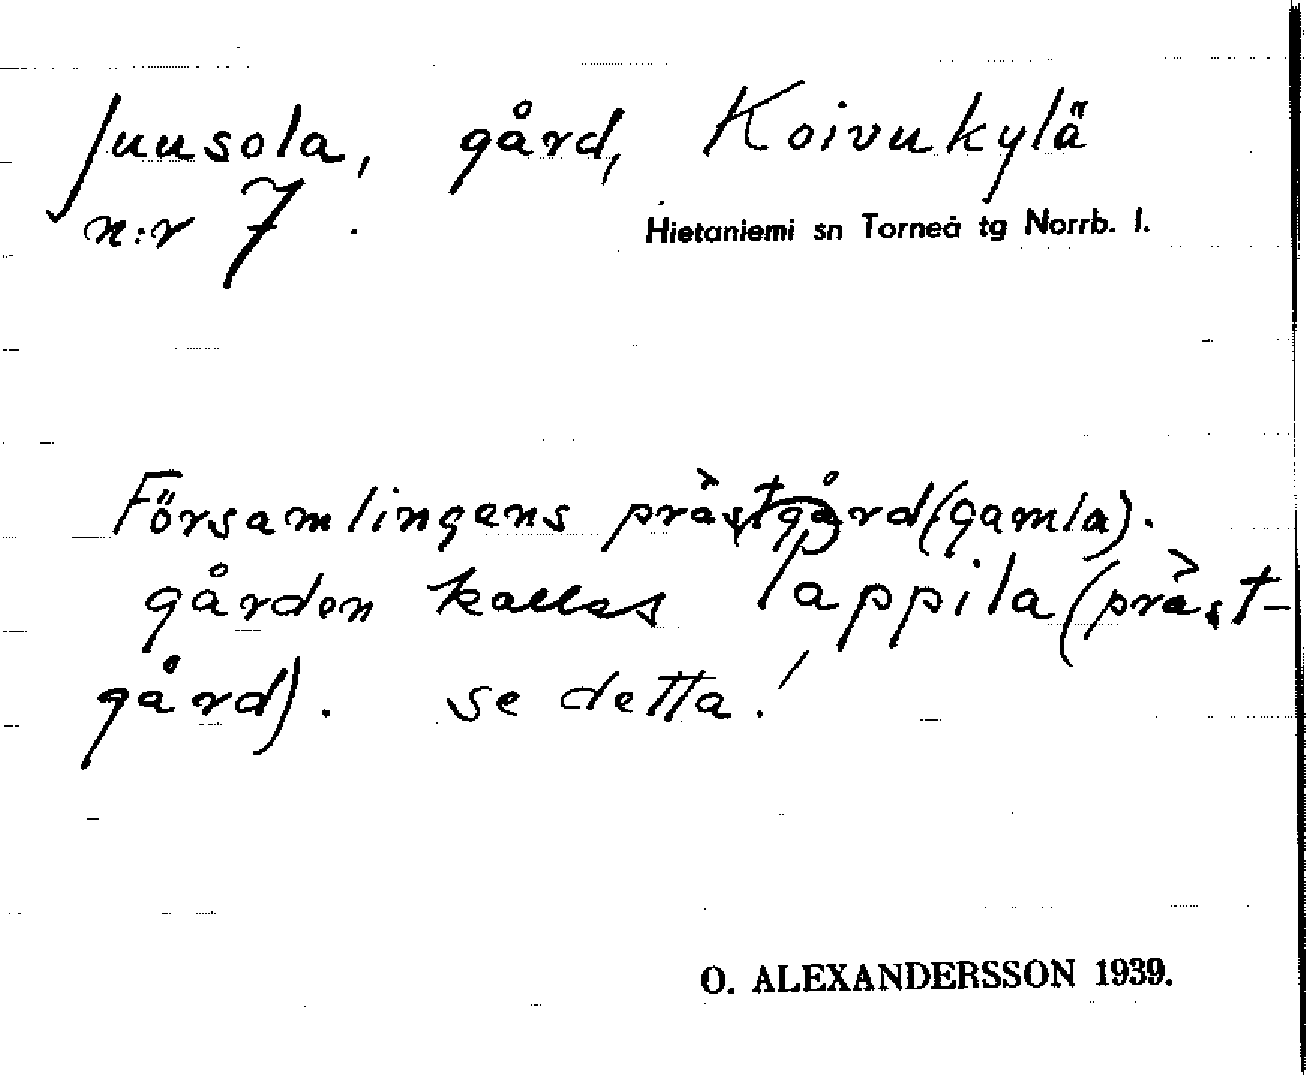 Juusola, gård, Koivukylä
n:r 7.
Hietaniemi sn Torneå tg Norrb. l.
Församlingens prästgård (gamla).
gården kallas lappila (präst-
gård). se detta!
O. ALEXANDERSSON 1939.